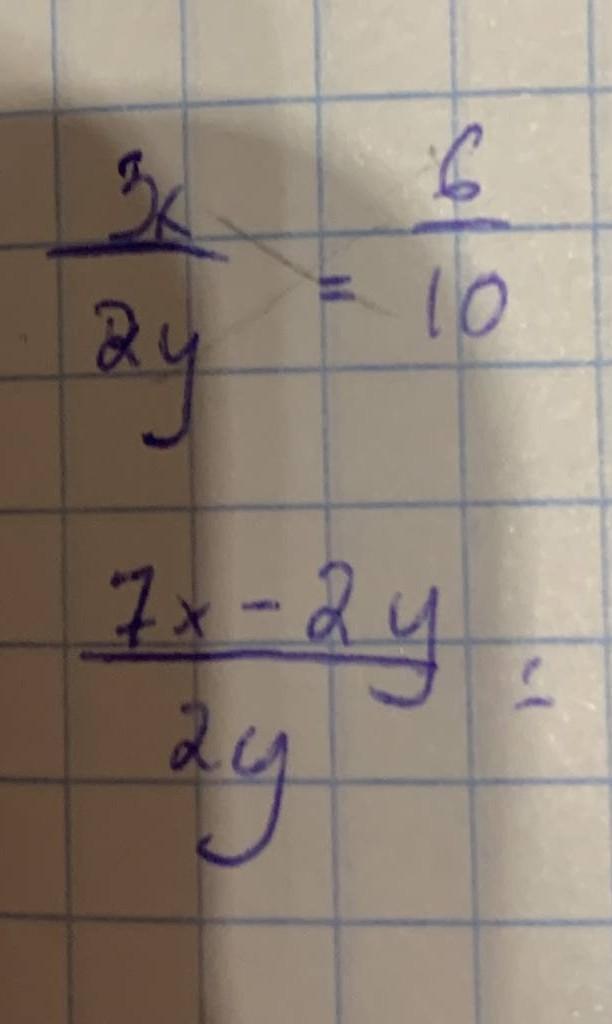 3x/2y = 6/10
7x - 2y/2y =